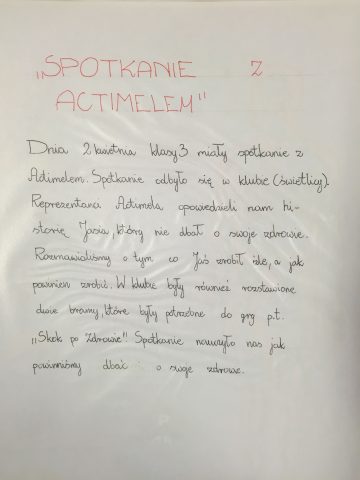 „SPOTKANIE Z
ACTIMELEM"
Dnia 2 kwietnia klasy 3 miały spotkanie z
Actimelem. Spotkanie odbyło się w klubie (świetlicy).
Reprezentanci Actimela opowiedzieli nam hi-
storię Jasia, który nie dbał o swoje zdrowie.
Rozmawialiśmy o tym co Jaś zrobił źle, a jak
powinien zrobić. W klubie były również rozstawione
dwie bramy, które były potrzebne do gry p.t.
„Skok po zdrowie". Spotkanie nauczyło nas jak
powinniśmy dbać o swoje zdrowie.